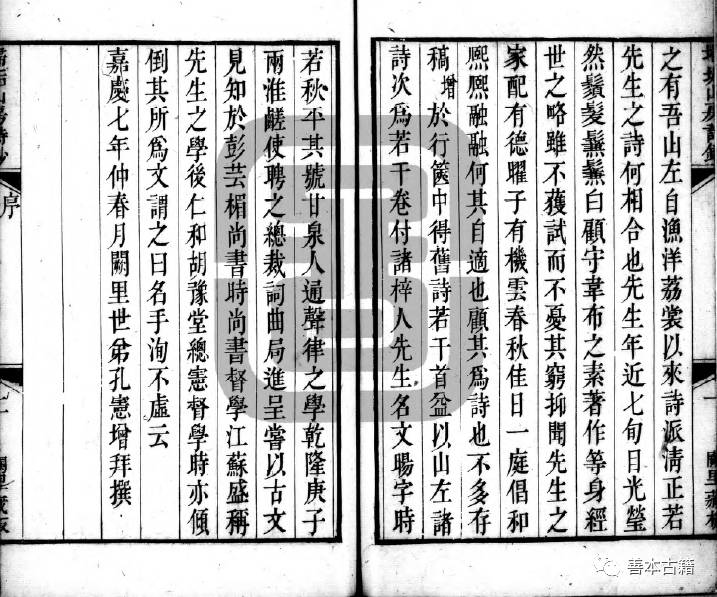 之有吾山左自漁洋荔裳以來詩派清正若
先生之詩何相合也先生年近七旬目光瑩
然鬚髮鬖鬖白顧守韋布之素著作等身經
世之略雖不獲試而不憂其窮抑聞先生之
家配有德曜子有機雲春秋佳日一庭倡和
熙熙融融何其自適也顧其為詩也不多存
稿增於行篋中得舊詩若干首益以山左諸
詩次為若干卷付諸梓人先生名文暘字時
若秋平其號甘泉人通聲律之學乾隆庚子
兩淮鹺使聘之總裁詞曲局進呈嘗以古文
見知於彭芸楣尚書時尚書督學江蘇盛稱
先生之學後仁和胡豫堂總憲督學時亦傾
倒其所為文謂之曰名手洵不虛云
嘉慶七年仲春月闕里世弟孔憲增拜撰
掃垢山房詩鈔
序
闕里藏板
善本古籍